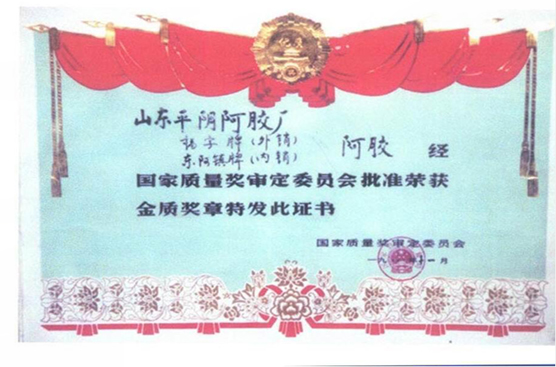 山东平阴阿胶厂
福字牌(外销)
东阿镇牌(内销)
阿胶 经
国家质量奖审定委员会批准荣获
金质奖章特发此证书
国家质量奖审定委员会
十一月